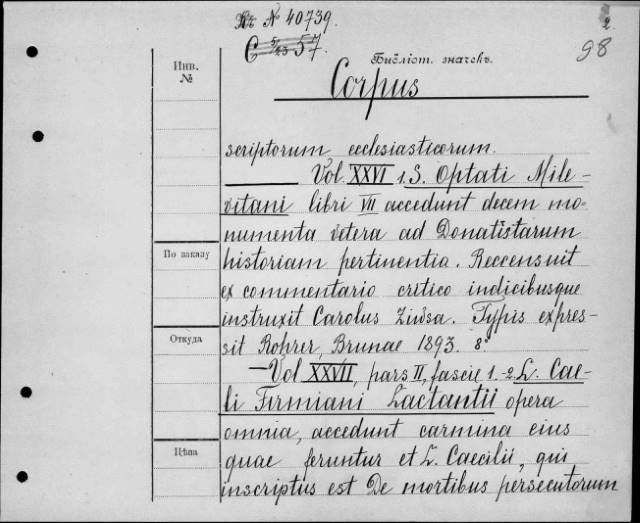 Къ № 40739.
2.
98
Библіот. значекъ.
Инв.
№
Corpus
scriptorum ecclesiasticorum.
Vol. XXVI 1. S. Optati Mile-
vitani libri VII accedunt decem mo-
numenta vetera ad Donatistarum
По заказу
historiam pertinentia. Reccensuit
ex commentario critico indicibusque
instruxit Carolus Ziwsa. Typis expres-
Откуда
sit Rohrer, Brunae 1893. 8°
— Vol XXVII, pars II, fascic 1.-2. L. Cae-
li Firmiani Lactantii opera
omnia, accedunt carmina eius
Цѣна
quae feruntur et L. Caecilii, qui
inscriptus est De mortibus persecutorum